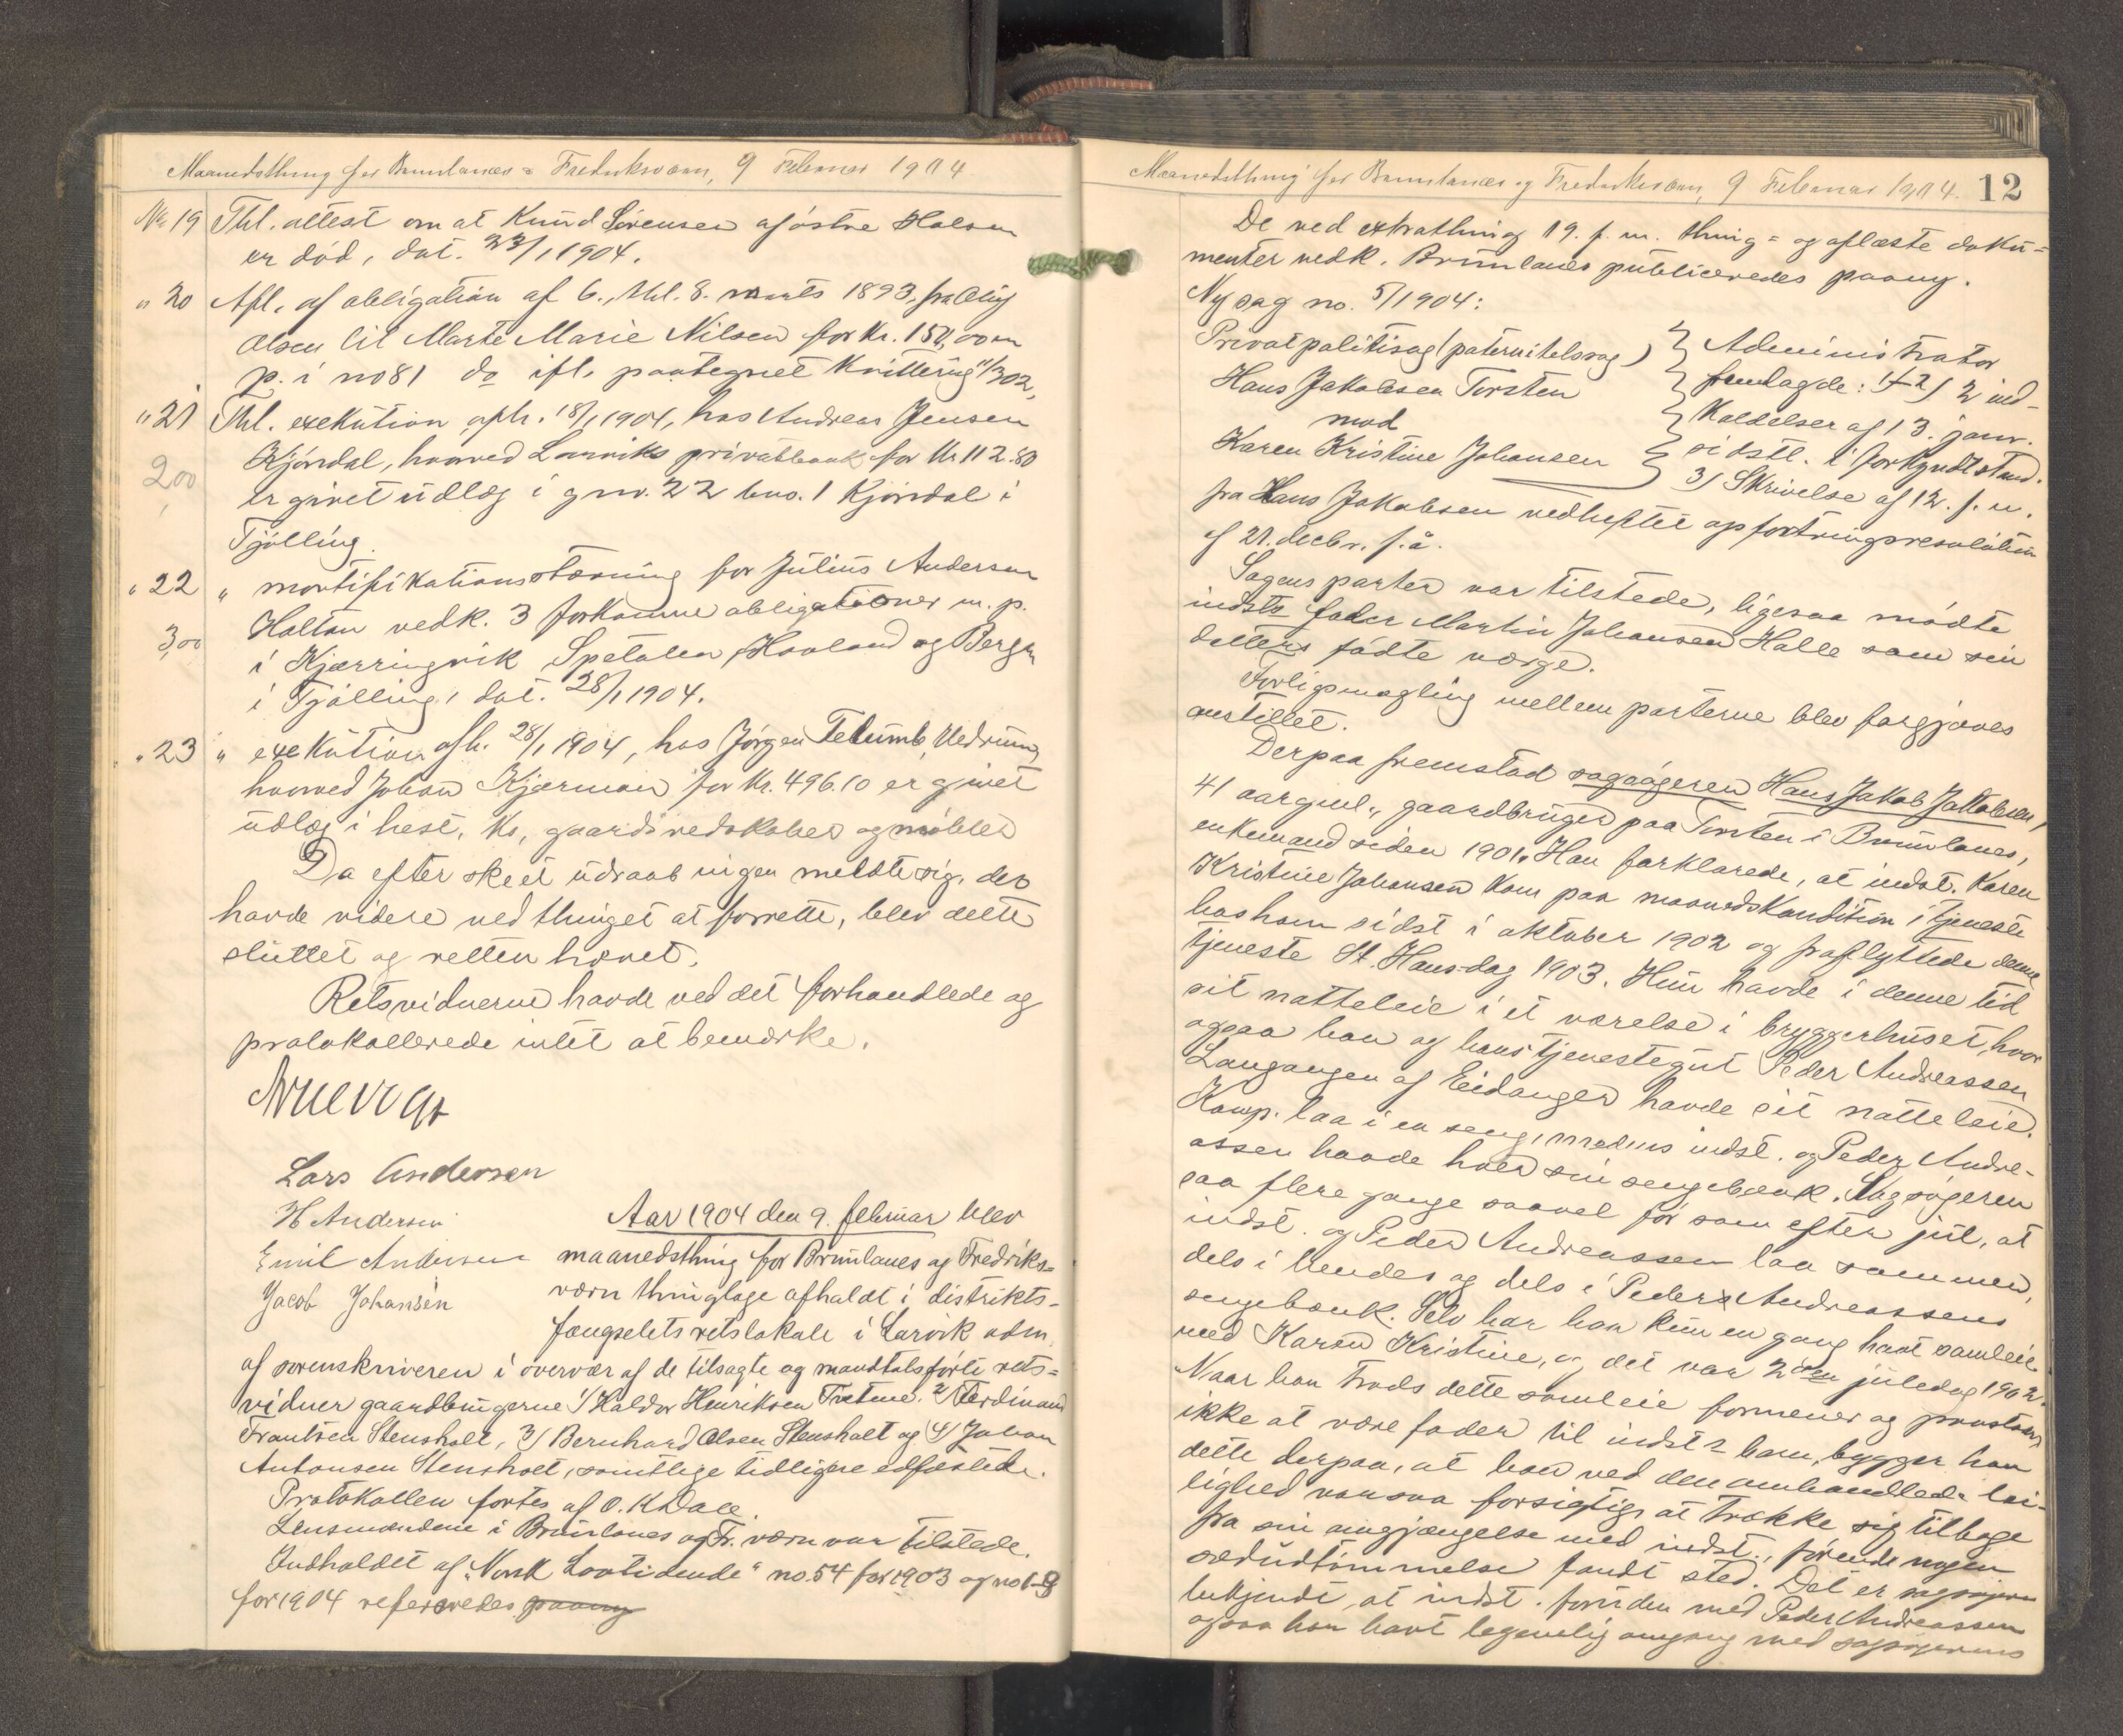 Maanedsthing for Brunlanæs = Fredriksværn, 9 Februar 1904
No 19 Thl. attest om at Knud Sørensen af østre Halsen
er død, dat. 23/1 1904.
" 20 Afl. af obligation af 6., thl. 8. marts 1893, fra
Olsen til Marte Marie Nilsen for Kr. 150,00 m
p. i no 81 do ifl. paategnet Kvittering 11/3 02,
" 21 Thl. exekution, afh. 18/1 1904, hos Andreas Jensen
Kjøndal, hvorved Larviks privatbank for Kr 112.80
2,00 er givet udlæg i gno. 22 bno. 1 Kjøndal i
Tjølling.
" 22 " mortifikationsstævning for Julius Andersen
Holtan vedk. 3 forkomne obligationer m. p.
3,00 i Kjærringvik, Spetalen, Hovland og Bergen
i Tjølling, dat. 28/1 1904.
" 23 " exekution afh. 28/1 1904, hos Jørgen Telumb, Hedrum,
hvorved Johan Kjærman for Kr. 496.10 er givet
udlæg i hest, Ko, gaardsredskaber og møbler
Da efter skeet udraab ingen meldte sig, der
havde videre ved thinget at forrette, blev dette
sluttet og retten hævet.
Retsvidnerne havde ved det forhandlede og
protokollerede intet at bemærke.
Lars Andersen
H Andersen
Emil Andersen
Jacob Johansen
Aar 1904 den 9. februar blev
maanedsthing for Brunlanes og Fredriks=
værn thinglage afholdt i distrikts-
fængselets retslokale i Larvik adm.
af sorenskriveren i overvær af de tilsagte og mandtalsførte rets=
vidner gaardbrugerne 1/ Haldor Henriksen Tretme, 2/ Ferdinand
Frantsen Stensholt, 3/ Bernhard Olsen Stensholt og 4/ Johan
Antonsen Stensholt, samtlige tidligere edfæstede.
Protokollen førtes af O. K Dale.
Lensmændene i Brunlanes og Fr. værn var tilstede.
Indholdet af "Norsk Lovtidende" no. 54 for 1903 og no 1-9
for 1904 refereredes paany
Maanedsthing for Brunlanæs og Fredriksværn, 9 Februar 1904. 12
De ved extrathing 19. f. m. thing= og aflæste doku=
menter vedk. Brunlanes publiceredes paany.
Ny sag no. 5/1904:
Privat politisag (paternitetssag)
Hans Jakobsen Torsten
mod
Karen Kristine Johansen
Administrator
fremlagde: 1-2/ 2 ind-
kaldelser af 13. janr.
sidstl. i forkyndt stand.
3/ Skrivelse af 12. f. m.
fra Hans Jakobsen vedheftet opfostringsresolution
af 21. decbr. f. å.
Sagens parter var tilstede, ligesaa mødte
indsts fader Martin Johansen Halle som sin
datters fødte værge.
Forligsmægling mellem parterne blev forgjæves
anstillet.
Derpaa fremstod sagsøgeren Hans Jakob Jakobsen,
41 aar gml., gaardbruger paa Torsten i Brunlanes,
enkemand siden 1901. Han forklarede, at indst. Karen
Kristine Johansen kom paa maanedskondition i tjeneste
hos ham sidst i oktober 1902 og fraflyttede denne
tjeneste St. Hansdag 1903. Hun havde i denne tid
sit natteleie i et værelse i bryggerhuset, hvor
ogsaa han og hans tjenestegut Peder Andreassen
Langangen af Eidanger havde sit natteleie.
Komp. laa i en seng, medens indst. og Peder Andre-
assen havde hver sin sengebænk. Sagsøgeren
saa flere gange saavel før som efter jul, at
indst. og Peder Andreassen laa sammen,
dels i hendes og dels i Peder Andreassens
sengebænk. Selv har han kun en gang havt samleie
med Karen Kristine, og det var 2den juledag 1902.
Naar han trods dette samleie formener og paastaar
ikke at være fader til indsts barn, bygger han
dette derpaa, at han ved den omhandlede lei-
lighed var saa forsigtig at trække sig tilbage
fra sin omgjængelse med indst., førend nogen
sæduttømmelse fandt sted. Det er sagsøgeren
bekjendt, at indst. foruden med Peder Andreassen
ogsaa har havt legemlig omgang med sagsøgerens